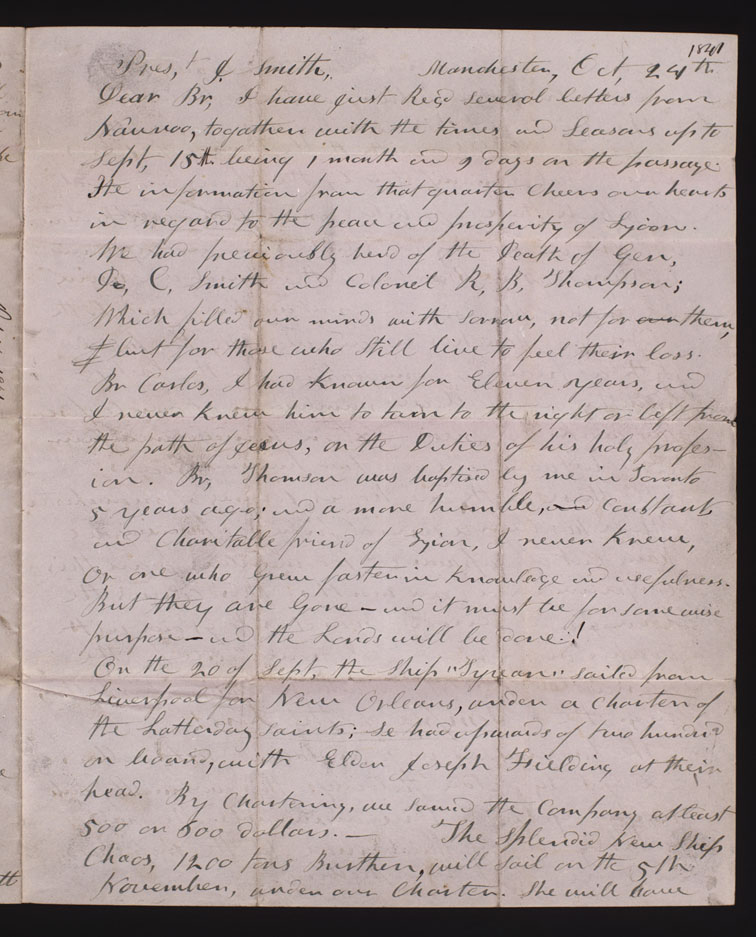 1841
Pres,t J. Smith,     Manchester, Oct, 24th
Dear Br, I have just Recd several letters from
Nauvoo, togather with the times and Seasons up to
Sept, 15th being 1 month and 9 days on the passage.
The information from that quarter Cheers our hearts
in regard to the peace and prosperity of Zyion.
We had previously herd of the Death of Gen,
D, C, Smith and Colonel R, B, Thompson;
Which filled our minds with sorrow, not for our them,
but for those who still live to feel their loss.
Br Carlos, I had Known for Eleven years, and
I never Knew him to turn to the right or left from
the path of jesus, or the Duties of his holy profes-
ion. Br, Thomson was baptised by me in Toronto
5 years ago; and a more humble, and Constant,
and Charitable friend of Zyion, I never Knew,
Or one who Grew faster in Knowledge and usefulness.
But they are Gone – and it must be for some wise
purpose – and the Lords will be done!
On the 20 of Sept, the Ship "Tyrean" sailed from
Liverpool for New Orleans, under a Charter of
the Latterday saints; Se had upwards of two hundrd
on board, with Elder Joseph Fielding at their
head. By Chartering, we saved the Company at least
500 or 600 dollars. — The Splendid New Ship
Chaos, 1200 tons Burthen, will sail on the 5th
November, under our Charter. She will have